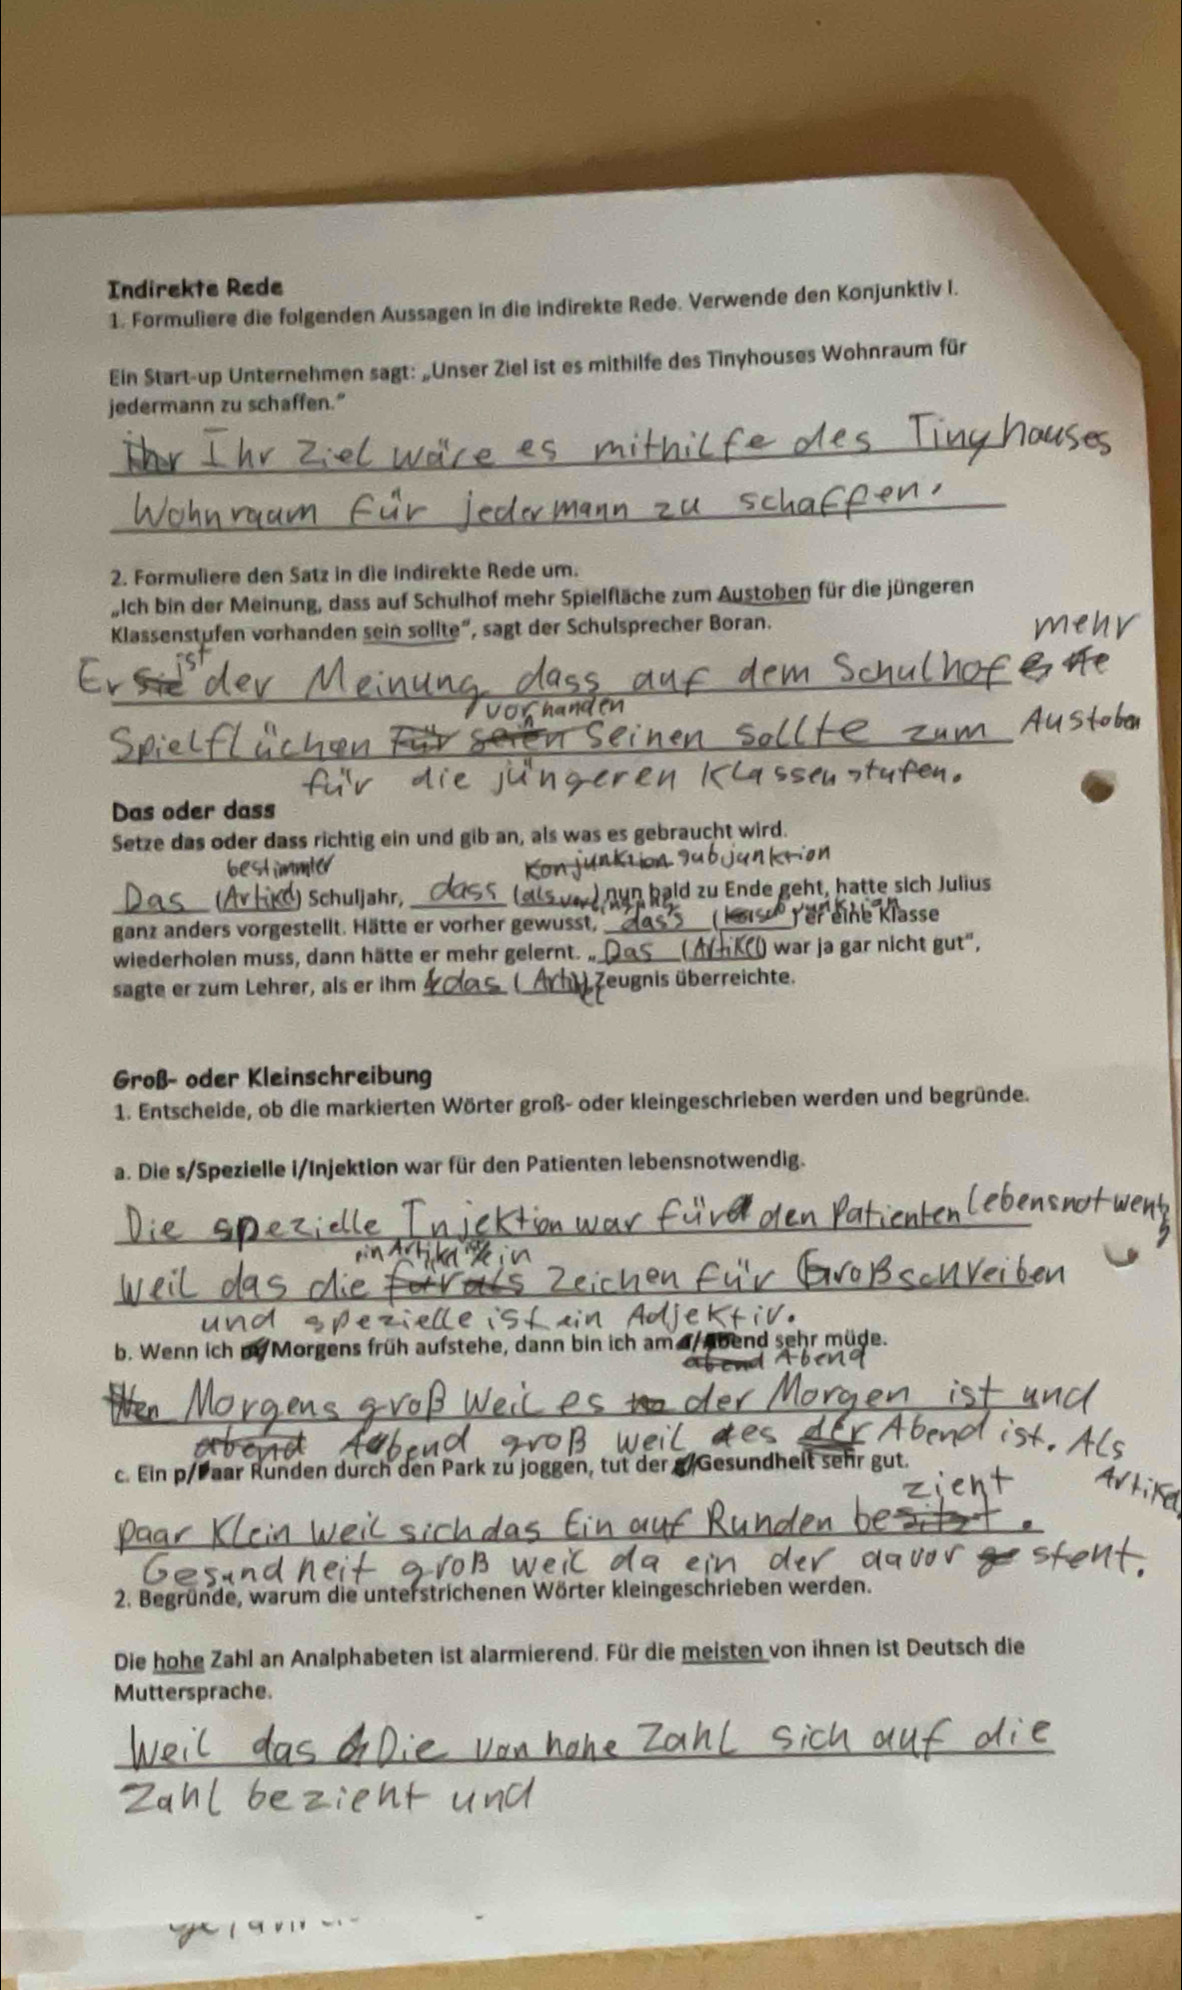 Indirekte Rede
1. Formuliere die folgenden Aussagen in die indirekte Rede. Verwende den Konjunktiv I.
Ein Start-up Unternehmen sagt: „Unser Ziel ist es mithilfe des Tinyhouses Wohnraum für
jedermann zu schaffen.“
Ihr Ziel wäre es mithilfe des Tinyhouses
Wohnraum für jedermann zu schaffen.
2. Formuliere den Satz in die indirekte Rede um.
„Ich bin der Meinung, dass auf Schulhof mehr Spielfläche zum Austoben für die jüngeren
Klassenstufen vorhanden sein sollte“, sagt der Schulsprecher Boran.
mehr
ist
Er der Meinung, dass auf dem Schulhof
vorhanden
Spielflächen seinen sollte zum Austoben
für die jüngeren Klassenstufen.
Das oder dass
Setze das oder dass richtig ein und gib an, als was es gebraucht wird.
bestimmter Konjunktion subjunktion
Das (Artikel) Schuljahr, dass nun bald zu Ende geht, hatte sich Julius
ganz anders vorgestellt. Hätte er vorher gewusst, dass er eine Klasse
wiederholen muss, dann hätte er mehr gelernt. „Das (Artikel) war ja gar nicht gut“,
sagte er zum Lehrer, als er ihm das (Artikel) Zeugnis überreichte.
Groß- oder Kleinschreibung
1. Entscheide, ob die markierten Wörter groß- oder kleingeschrieben werden und begründe.
a. Die s/Spezielle i/Injektion war für den Patienten lebensnotwendig.
Die spezielle Injektion war für den Patienten
ein Artikel ein
Weil das die Zeichen für Großschreiben
und spezielle ist ein Adjektiv.
b. Wenn ich m/Morgens früh aufstehe, dann bin ich am a/Abend sehr müde.
abend Abend
Morgens groß weil es der Morgen ist und
abend Abend groß weil des der Abend ist. Als
c. Ein p/Paar Runden durch den Park zu joggen, tut der g/Gesundheit sehr gut.
Artikel
zieht
paar Klein weil sich das Ein auf Runden besitzt.
Gesundheit groß weil da ein der davor steht.
2. Begründe, warum die unterstrichenen Wörter kleingeschrieben werden.
Die hohe Zahl an Analphabeten ist alarmierend. Für die meisten von ihnen ist Deutsch die
Muttersprache.
Weil das Die von hohe Zahl sich auf die
Zahl bezieht und